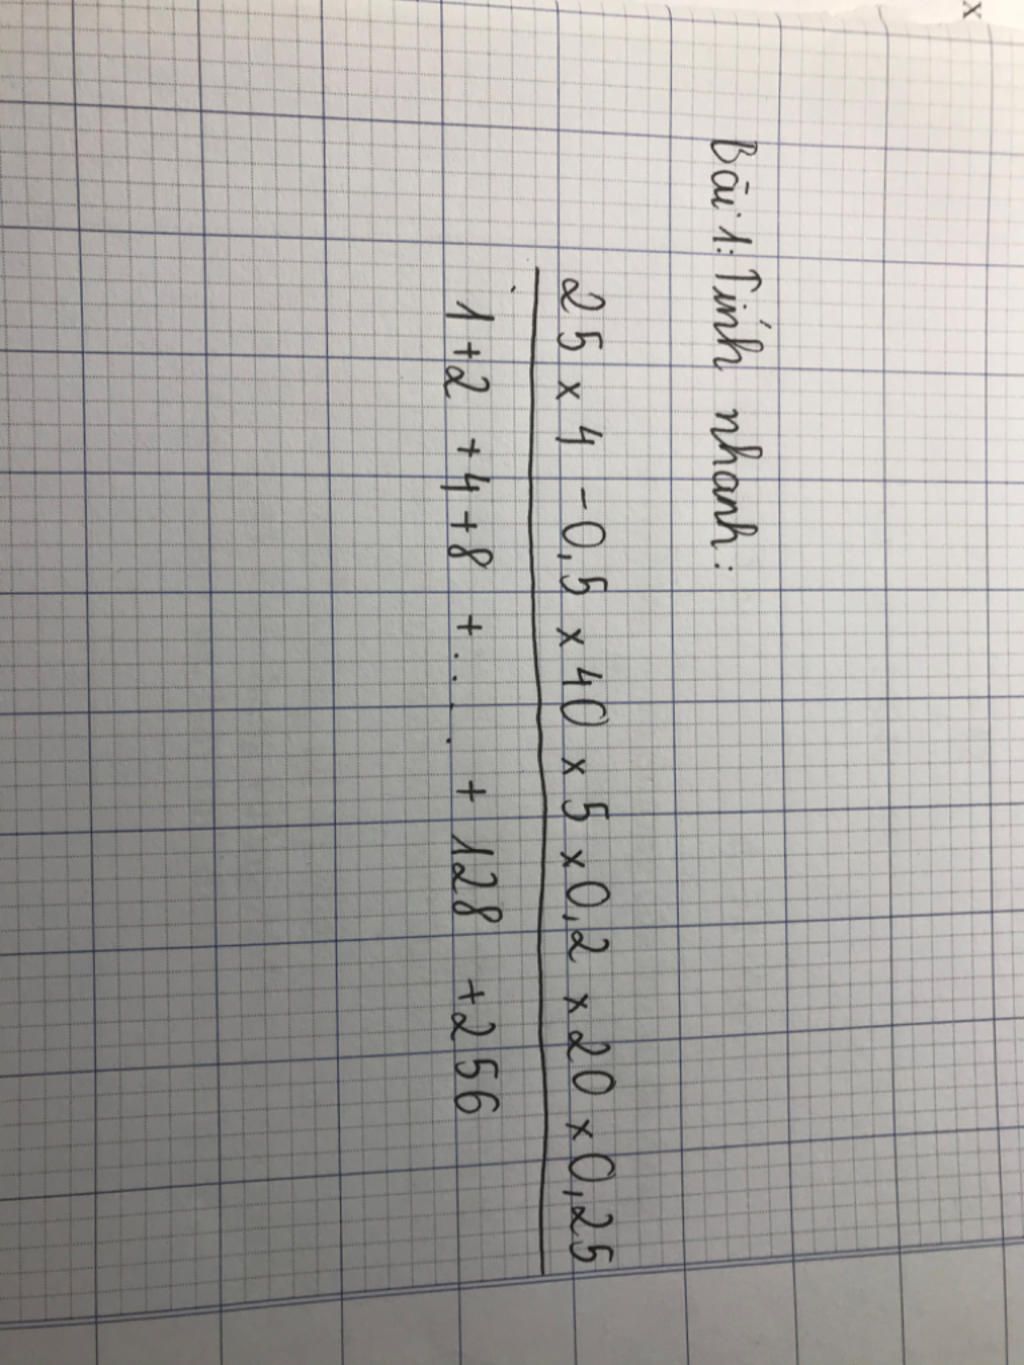 x
Bài 1: Tính nhanh:
25 x 4 - 0,5 x 40 x 5 x 0,2 x 20 x 0,25
1 + 2 + 4 + 8 + .... + 128 + 256